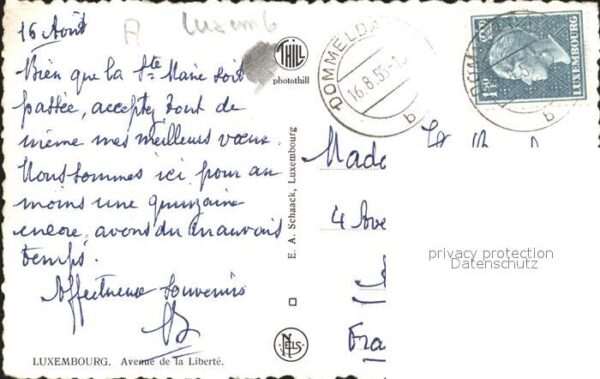 16 Août
A
Luxemb
Bien que la Ste Marie soit
passée, acceptez tout de
même mes meilleurs vœux.
Nous sommes ici pour au
moins une quinzaine
encore, avons du mauvais
temps.
Affectueux souvenirs
LUXEMBOURG. Avenue de la Liberté.
THILL
photothill
E. A. Schaack, Luxembourg
NELS
DOMMELDA
16.8.55-1
b
LUXEMBOURG
b
Made
4 Ave
Fra
privacy protection
Datenschutz